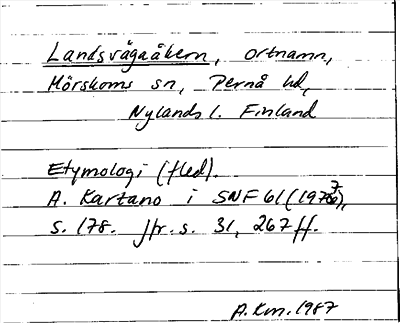 Landsvågaåkern, ortnamn,
Mörskoms sn, Pernå hd,
Nylands l. Finland
Etymologi (fled).
A. Kartano i SNF 61 (1977),
s. 178. Jfr. s. 31, 267 ff.
A. Km. 1987